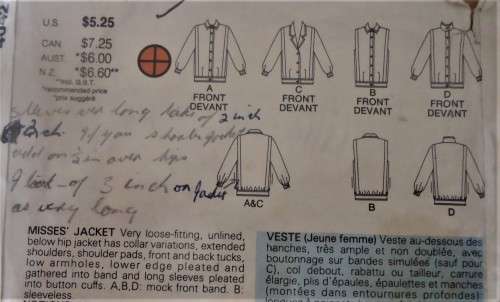 U.S $5.25
CAN $7.25
AUST. *$6.00
N.Z. *$6.60**
**incl. G.S.T.
*recommended price
*prix suggéré
A
FRONT
DEVANT
C
FRONT
DEVANT
B
FRONT
DEVANT
D
FRONT
DEVANT
sleeves very long take of 2 inch
inch. If you shorten jacket
add on 2 in over hips
I took of 3 inch on Jacket
as very long
A&C
B
D
MISSES' JACKET Very loose-fitting, unlined,
below hip jacket has collar variations, extended
shoulders, shoulder pads, front and back tucks,
low armholes, lower edge pleated and
gathered into band and long sleeves pleated
into button cuffs. A,B,D: mock front band. B:
sleeveless.
VESTE (Jeune femme) Veste au-dessous des
hanches, très ample et non doublée, avec
boutonnage sur bandes simulées (sauf pour
C), col debout, rabattu ou tailleur, carrure
élargie, plis d'épaules, épaulettes et manches
(montées dans entournures profondes)